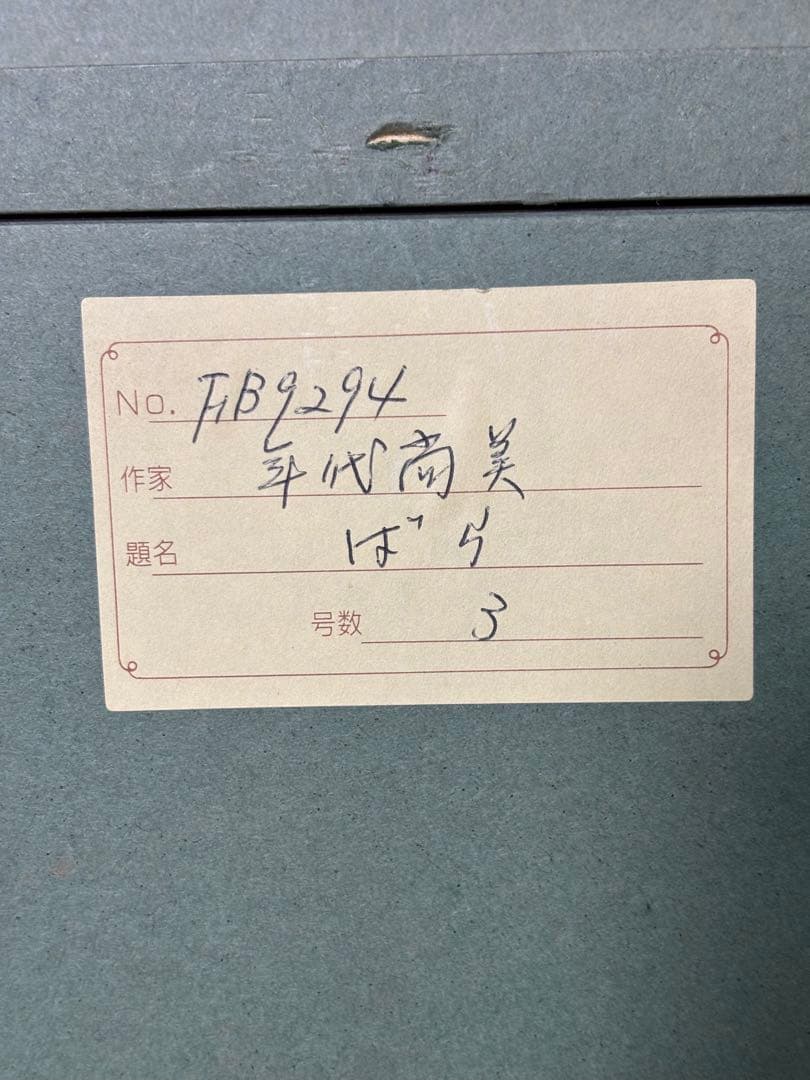 No. FAB9294
作家 年代尚美
題名 ばら
号数 3